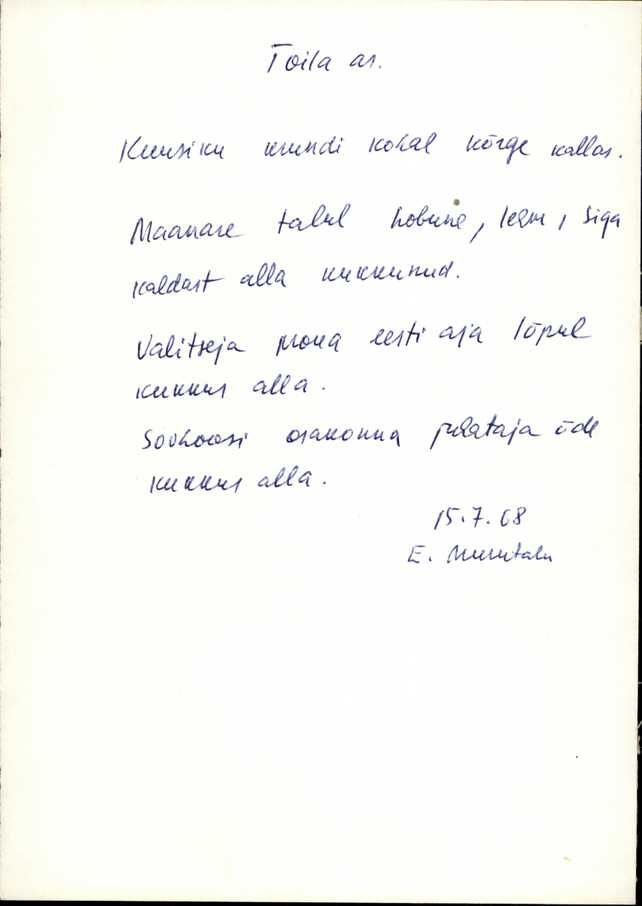 Toila as.
Kuusiku krundi kohal kõrge kallas.
Maanare talul hobune, lehm, siga
kaldast alla kukkunud.
Valitseja proua eesti aja lõpul
kukkus alla.
Sovhoosi osakonna juhataja õde
kukkus alla.
15.7.68
E.